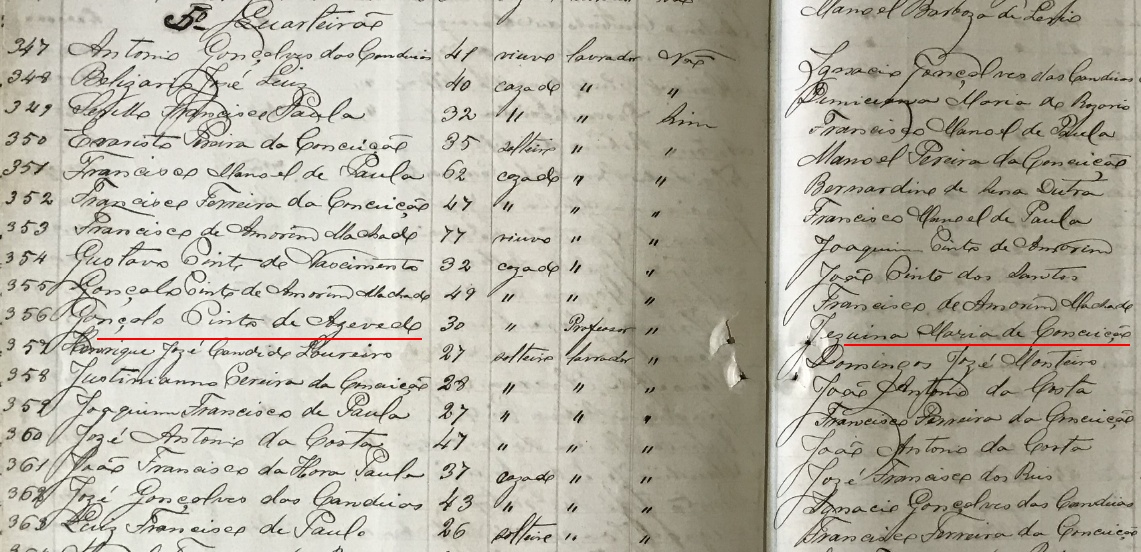 5º Quarteirão
Manoel Barboza de
347 Antonio Gonçalves das Candeias 41 viuvo lavrador Não Ignacio Gonçalves das Candeias
348 Belizario José Luiz 40 cazado " " Maria do Rozario
349 Francisco Paula 32 " " Sim Francisco Manoel de Paula
350 Evaristo Pereira da Conceição 35 solteiro " " Manoel Pereira da Conceição
351 Francisco Manoel de Paula 62 cazado " " Bernardino de Sena Dutra
352 Francisco Ferreira da Conceição 47 " " " Francisco Manoel de Paula
353 Francisco de Amorim Machado 77 viuvo " " Joaquim Pinto de Amorim
354 Gustavo Pinto do Nascimento 32 cazado " " João Pinto dos Santos
355 Gonçalo Pinto de Amorim Machado 49 " " " Francisco de Amorim Machado
356 Gonçalo Pinto de Azevedo 30 " Professor " Maria da Conceição
357 Henrique José Candido Loureiro 27 solteiro lavrador " Domingos José Monteiro
358 Justinianno Pereira da Conceição 28 " " " João Antonio da Costa
359 Joaquim Francisco de Paula 27 " " " Francisco Ferreira da Conceição
360 José Antonio da Costa 47 " " " João Antonio da Costa
361 João Francisco da Hora Paula 37 cazado " " José Francisco dos Reis
362 José Gonçalves das Candeias 43 " " " Ignacio Gonçalves das Candeias
363 Luiz Francisco de Paulo 26 solteiro " " Francisco Ferreira da Conceição